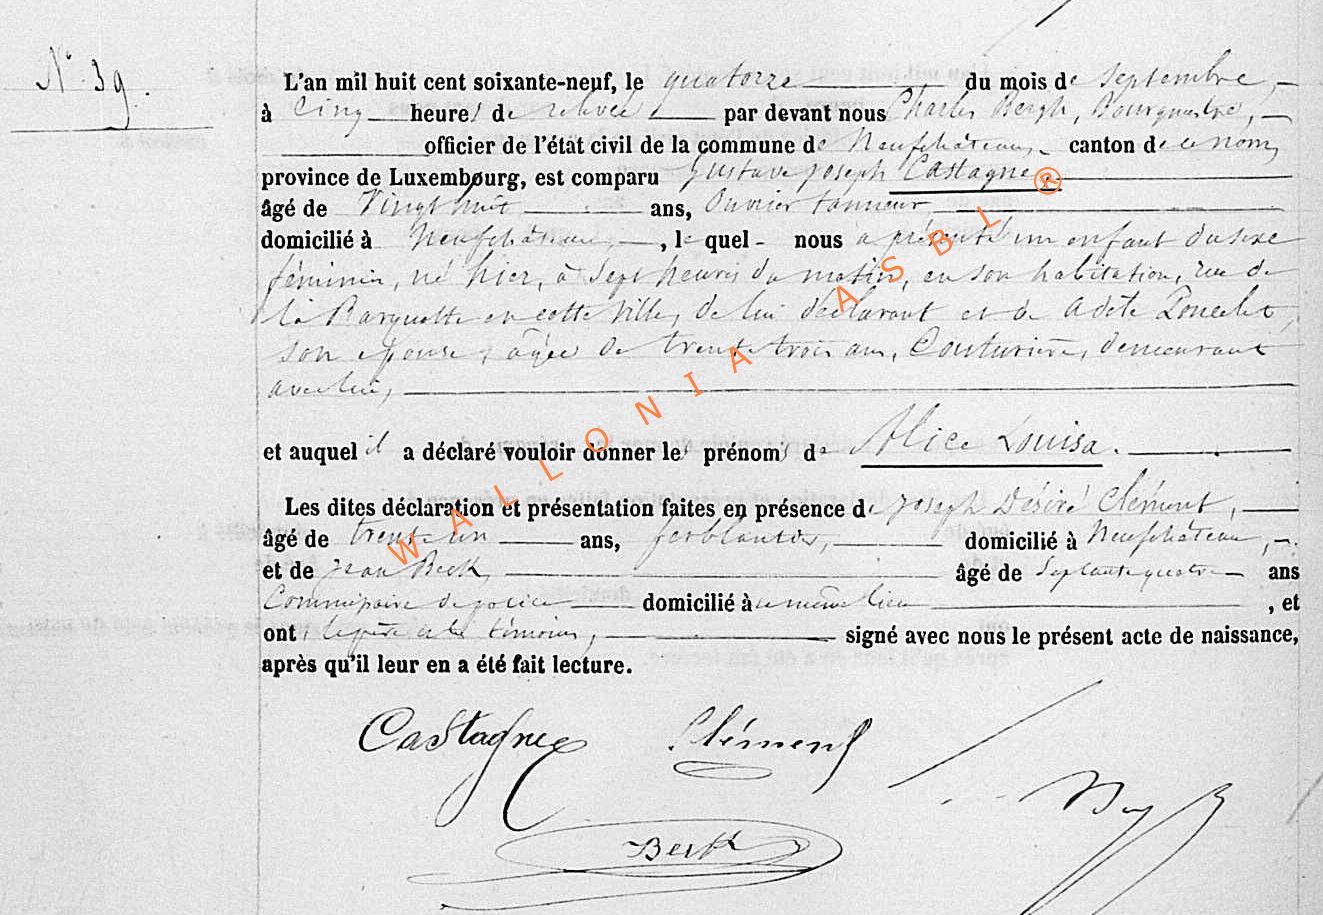 N° 39.
L'an mil huit cent soixante-neuf, le quatorze du mois de Septembre,
à Cinq heures de relevée par devant nous Charles Bergh, Bourgmestre,
officier de l'état civil de la commune de Neufchâteau, canton de ce nom,
province de Luxembourg, est comparu Gustave Joseph Castagne
âgé de Vingt huit ans, Ouvrier tanneur,
domicilié à Neufchâteau, lequel nous a présenté un enfant du sexe
féminin, né hier, à Sept heures du matin, en son habitation, rue de
la Barquette en cette Ville, de lui déclarant et de Adèle Poncelet,
son épouse, âgée de trente trois ans, Couturière, demeurant
avec lui,
et auquel il a déclaré vouloir donner les prénoms de Alice Louisa.
Les dites déclaration et présentation faites en présence de Joseph Désiré Clément,
âgé de trente un ans, ferblantier, domicilié à Neufchâteau,
et de Jean Beck, âgé de Septante quatre ans
Commissaire de police domicilié à se même lieu , et
ont le père et les témoins, signé avec nous le présent acte de naissance,
après qu'il leur en a été fait lecture.
Castagne Clément
Beck
WALLONIA ASBL ®